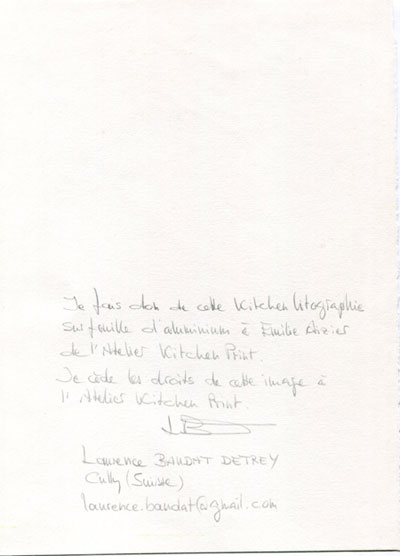 Je fais don de cette Kitchen litographie
sur feuille d'aluminium à Emilie Aizier
de l'Atelier Kitchen Print
Je cède les droits de cette image à
l'Atelier Kitchen Print.
LB
Laurence BANDAT DETREY
Cully (Suisse)
laurence.bandat@gmail.com